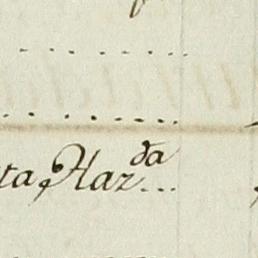 ta, Haz.da...